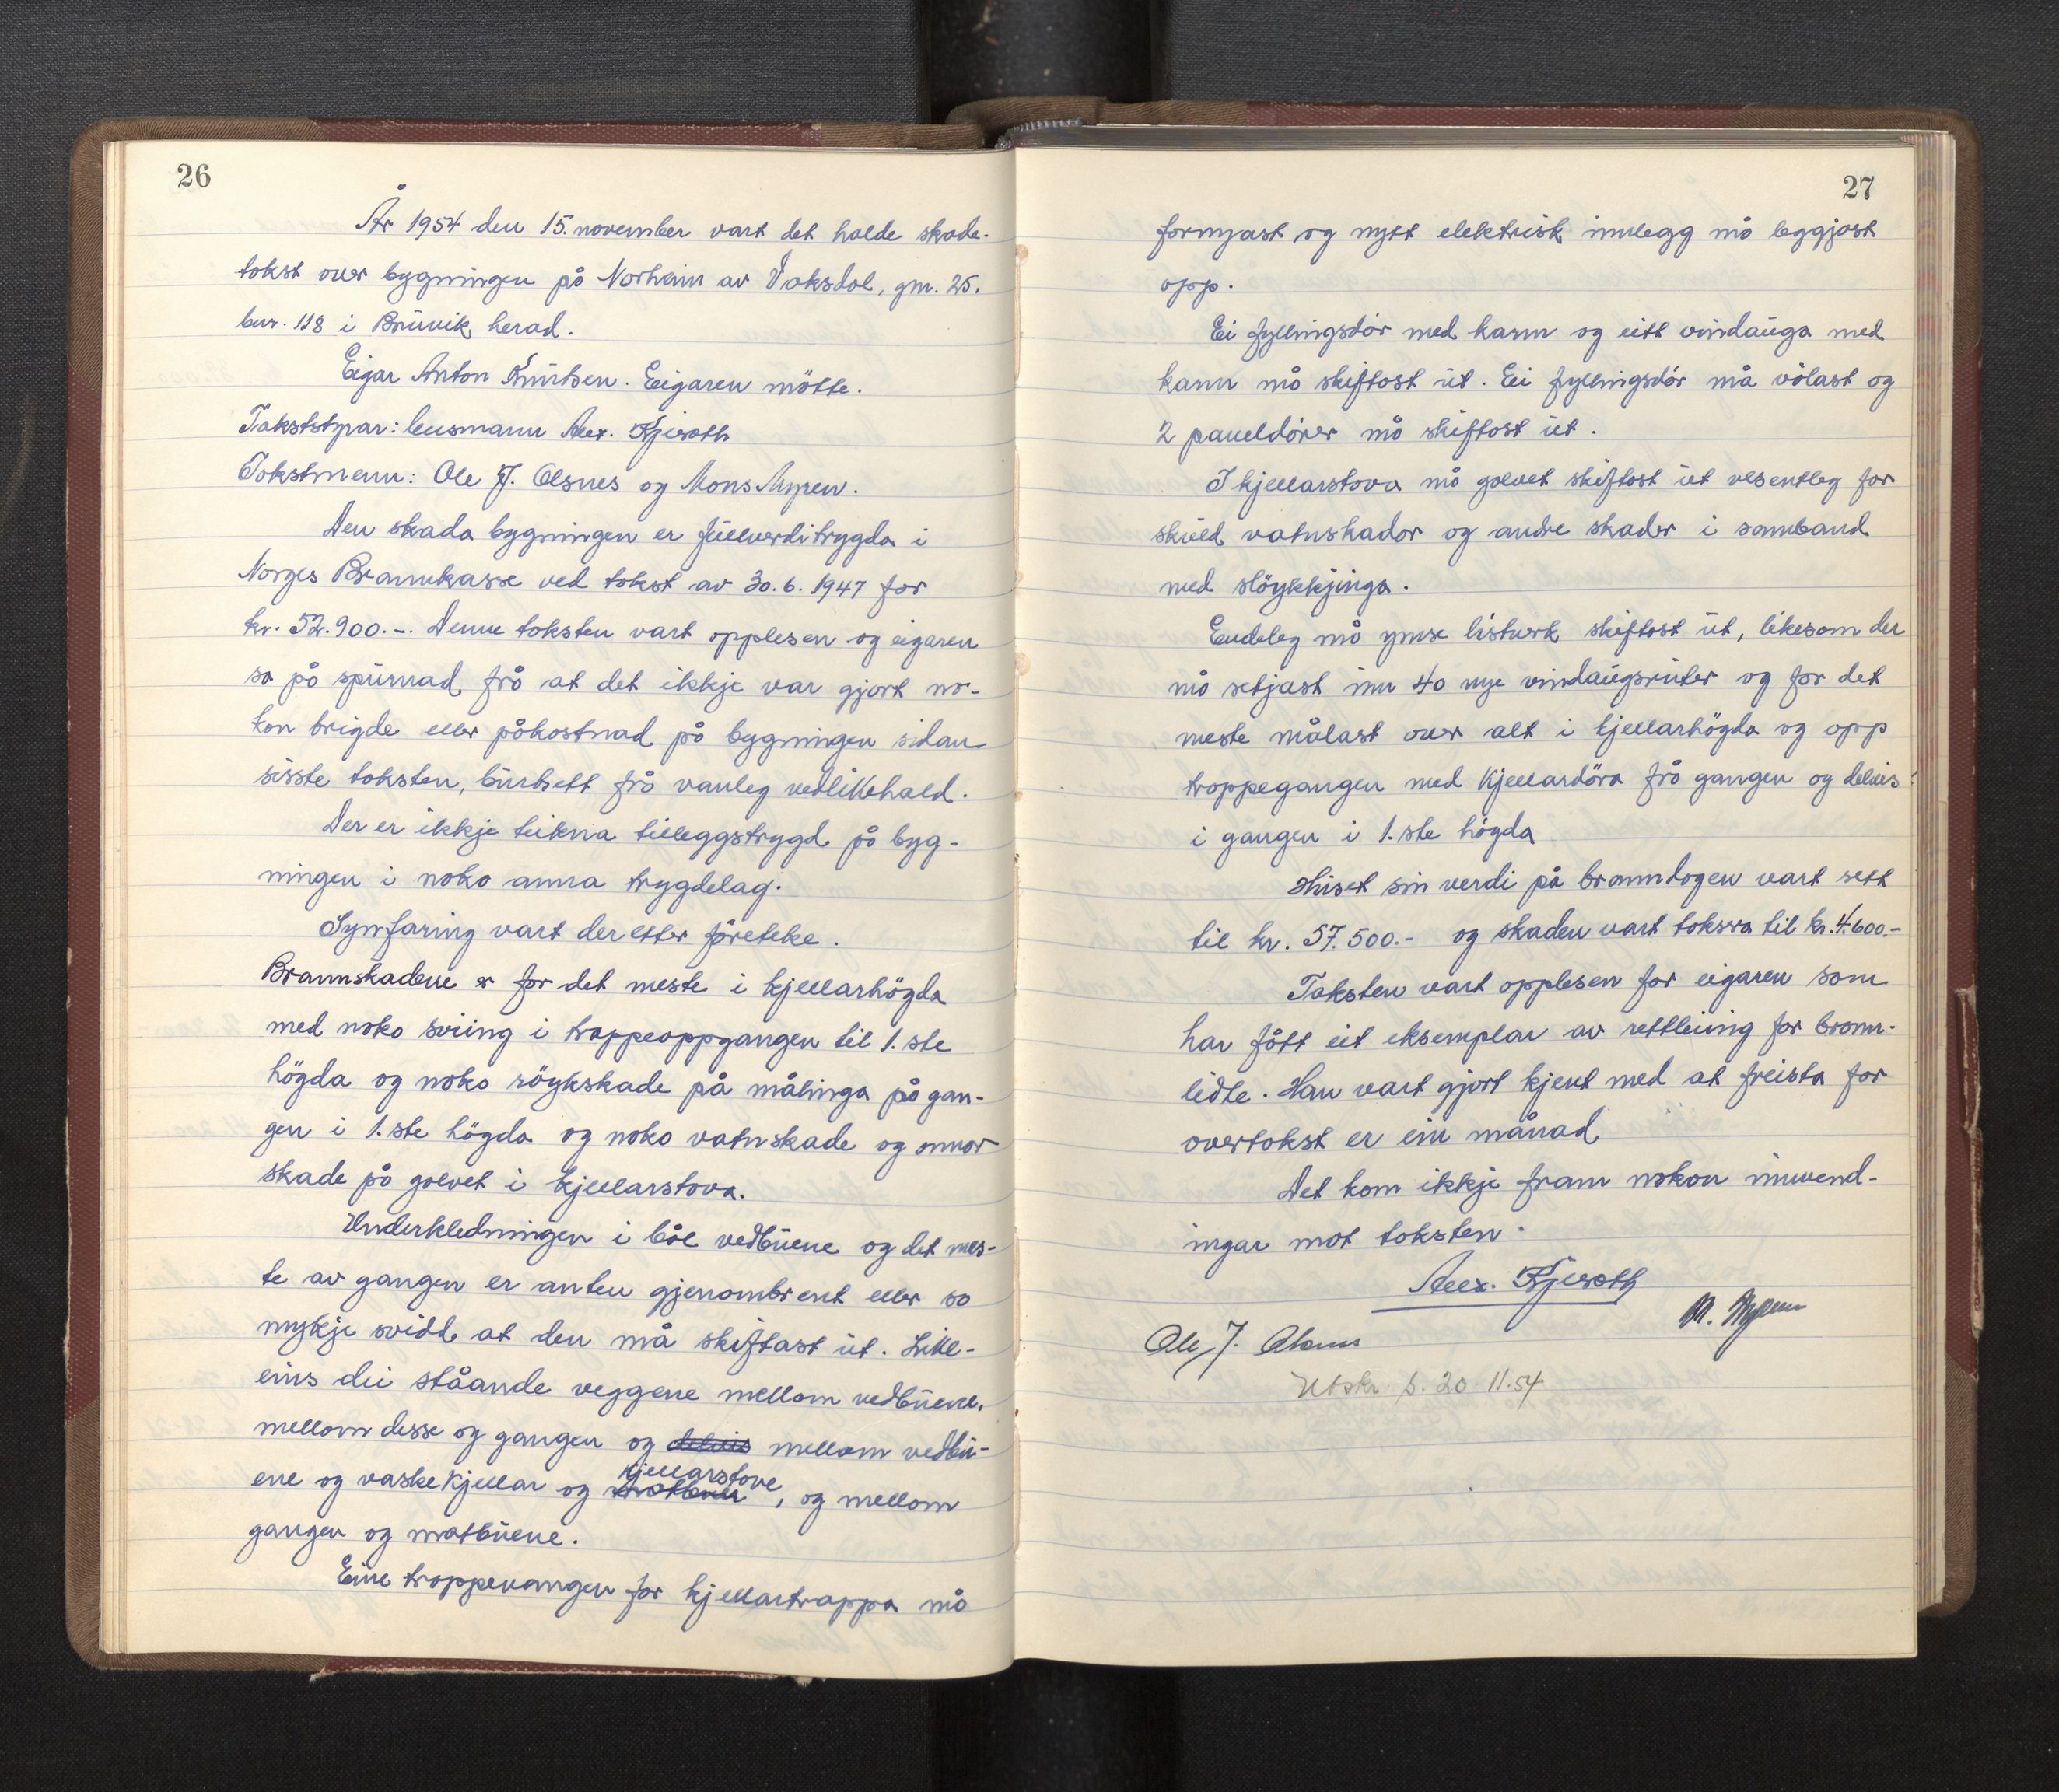 26
År 1954 den 15. november vart det halde skade-
takst over bygningen på Norheim av Vaksdal, gnr. 25.
bnr. 118 i Bruvik herad.
Eigar Anton Knutsen. Eigaren mötte.
Takststyrar: lensmann Alex. Kjeroth
Takstmenn: Ole J. Olsnes og Mons Myren.
Den skada bygningen er fullverditrygda i
Norges Brannkasse ved takst av 30.6.1947 for
kr. 52.900.-. Denne taksten vart opplesen og eigaren
sa på spurnad frå at det ikkje var gjort no-
kon brigde eller påkostnad på bygningen sidan
sisste taksten, burtsett frå vanleg vedlikehald.
Der er ikkje teikna tilleggstrygd på byg-
ningen i noko anna trygdelag.
Synfaring vart deretter företeke.
Brannskadene er for det meste i kjellarhögda
med noko sviing i trappeoppgangen til 1. ste
högda og noko röykskade på målinga på gan-
gen i 1. ste högda og noko vatnskade og annar
skade på golvet i kjellarstova.
Underkledningen i båe vedbuene og det mes-
te av gangen er anten gjenombrent eller so
mykje svidd at den må skiftast ut. Like-
eins dei ståande veggene mellom vedbuene,
mellom desse og gangen og delvis mellom vedbu-
ene og vaskekjellar og matbuer kjellarstove, og mellom
gangen og matbuene.
Eine trappevangen for kjellartrappa må
27
fornyast og nytt elektrisk innlegg må leggjast
opp.
Ei fyllingsdör med karm og eitt vindauga med
karm må skiftast ut. Ei fyllingsdör må völast og
2 paneldörer må skiftast ut.
I kjellarstova må golvet skiftast ut vesentleg for
skuld vatnskador og andre skader i samband
med slöykkjinga.
Endeleg må ymse listverk skiftast ut, likesom der
må setjast inn 40 nye vindaugsruter og for det
meste målast over alt i kjellarhögda og opp
trappegangen med kjellardöra frå gangen og delvis
i gangen i 1. ste högda
Huset sin verdi på branndagen vart sett
til kr. 57.500.- og skaden vart taksra til kr. 4.600.-
Taksten vart opplesen for eigaren som
har fått eit eksemplar av rettleiing for brann-
lidte. Han vart gjort kjent med at freista for
overtakst er ein månad
Det kom ikkje fram nokon innvend-
ingar mot taksten.
Alex. Kjeroth
M. Myren
Ole J. Olsnes
Utskr. s. 20 11.54